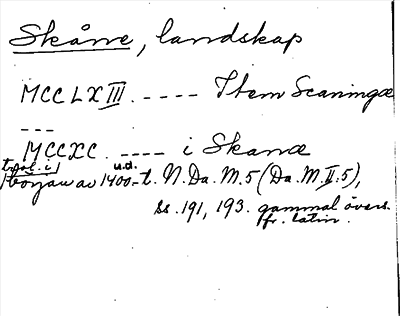 Skåne, landskap
MCCLXIII. - - - - Item Scaningæ
- - -
MCCXC. - - - - i Skanæ
trol. i u.d.
början av 1400-t. N. Da. M. 5 (Da. M. II:5),
ss. 191, 193. gammal övers.
fr. latin.